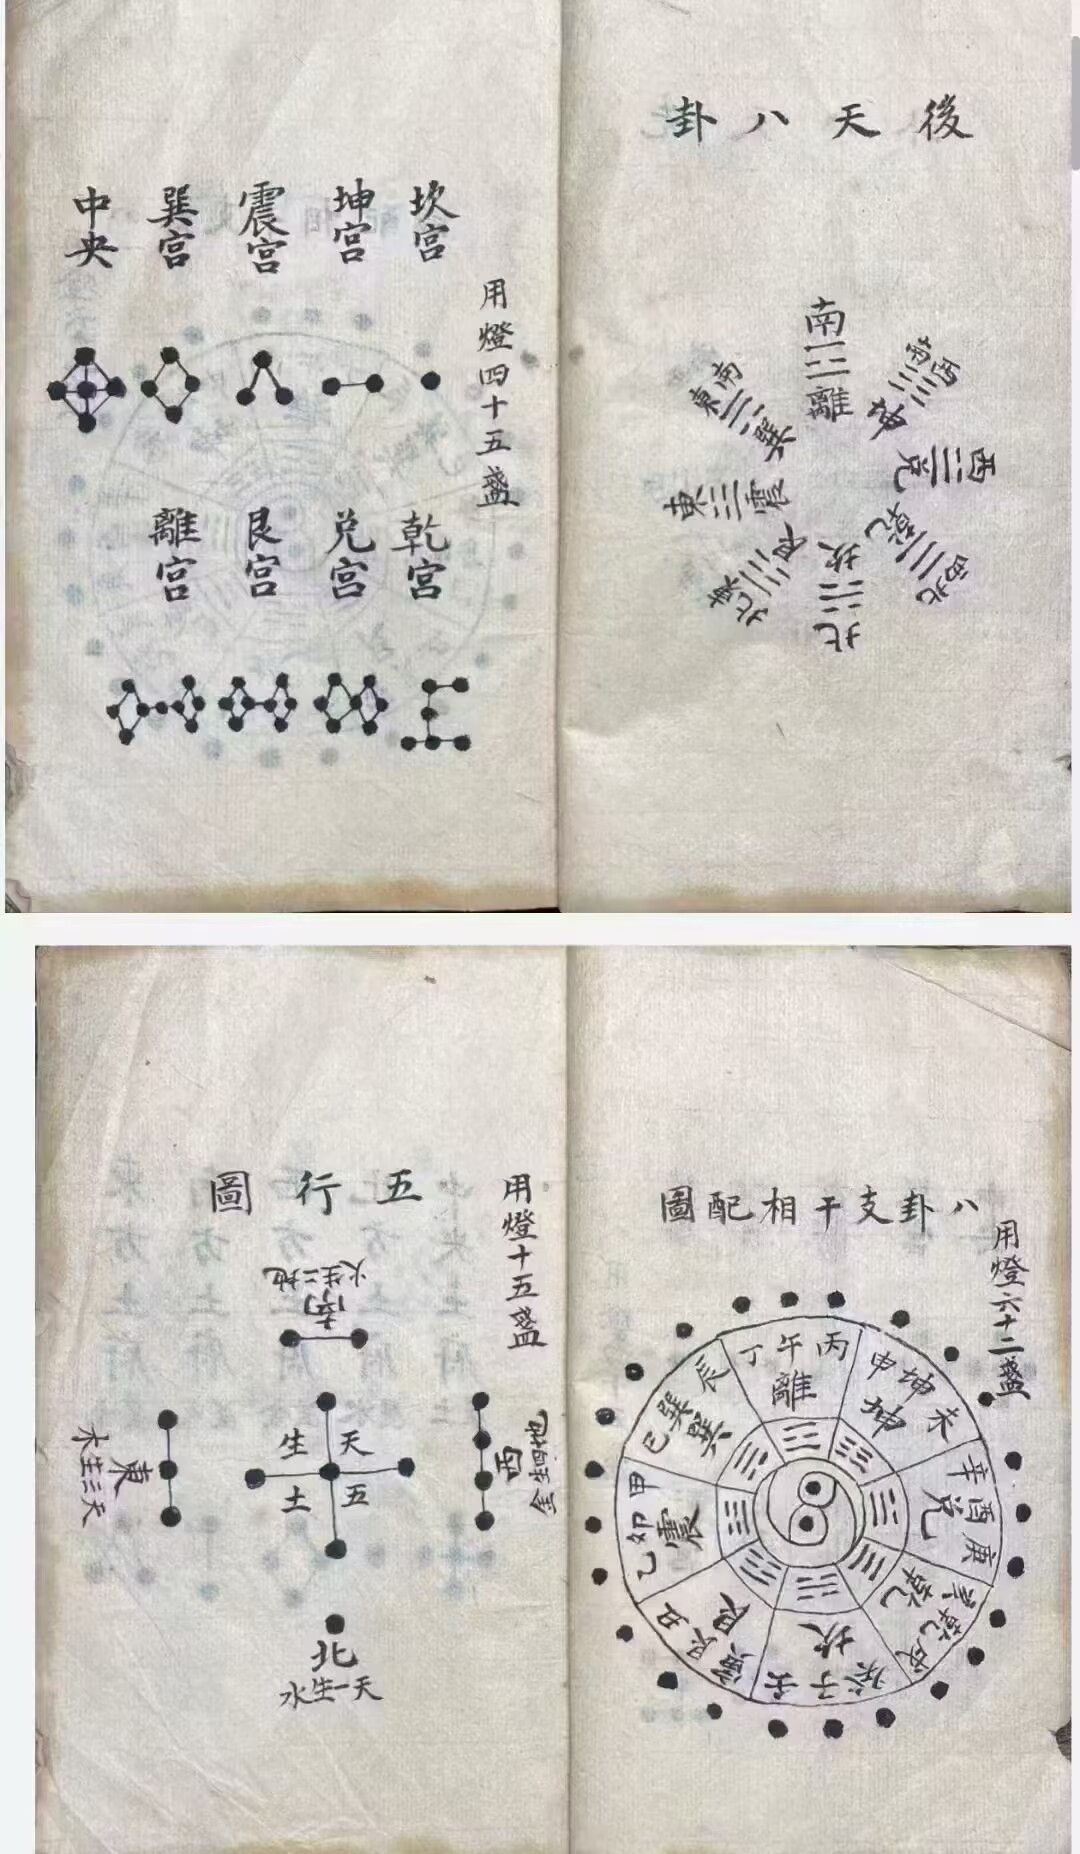 後天八卦
南
離
西南
坤
西
兌
西北
乾
北
坎
東北
艮
東
震
東南
巽
用燈四十五盞
坎宮
坤宮
震宮
巽宮
中央
乾宮
兌宮
艮宮
離宮
八卦支干相配圖
用燈六十二盞
丙午丁
離
未坤申
坤
庚酉辛
兌
戌乾
乾
壬子癸
坎
丑艮寅
艮
甲卯乙
震
辰巽巳
巽
五行圖
用燈十五盞
地二生火
南
西
東
天三生木
天五
生土
北
天一生水